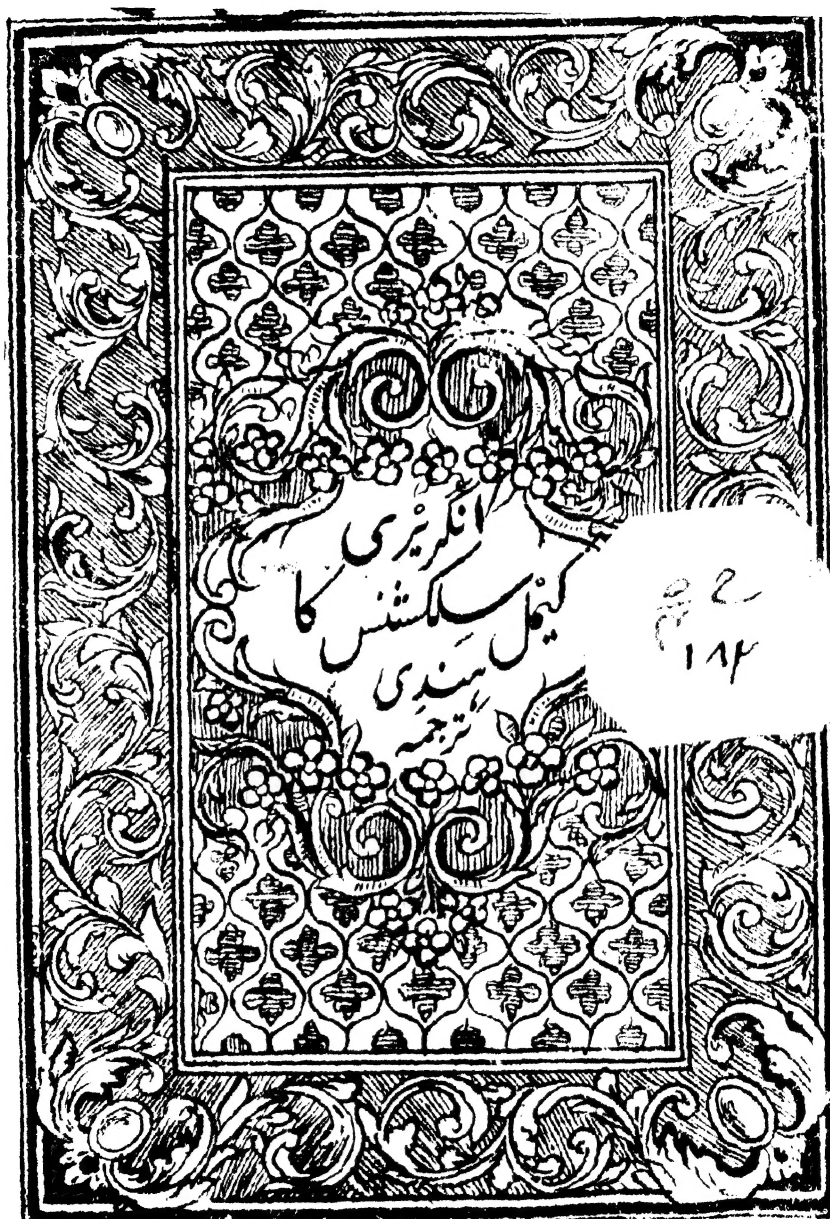 انگریزی
کیمل سلکشنس کا
ہندی
ترجمہ
۱۸۴